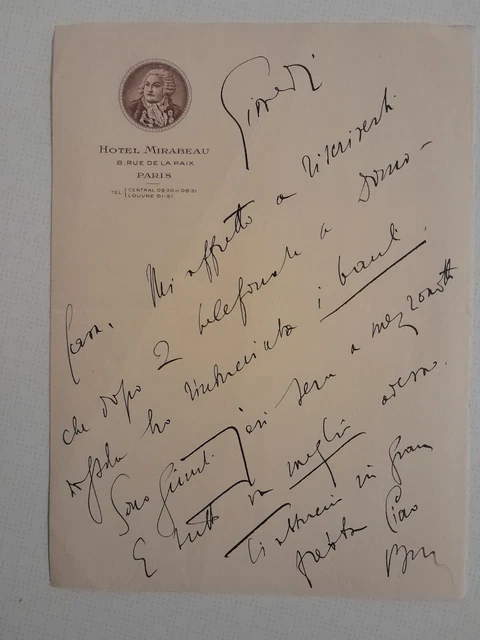 HOTEL MIRABEAU
8, RUE DE LA PAIX
PARIS
TEL.
CENTRAL
LOUVRE 51-61
Giovedì
Cara. Mi affretto a riscriverti
che dopo 2 telefonate a Domo-
dossola ho rintracciato i bauli.
Sono giunti ieri sera a mezzanotte
E tutto va meglio adesso.
Ti abbraccio in gran
fretta Ciao